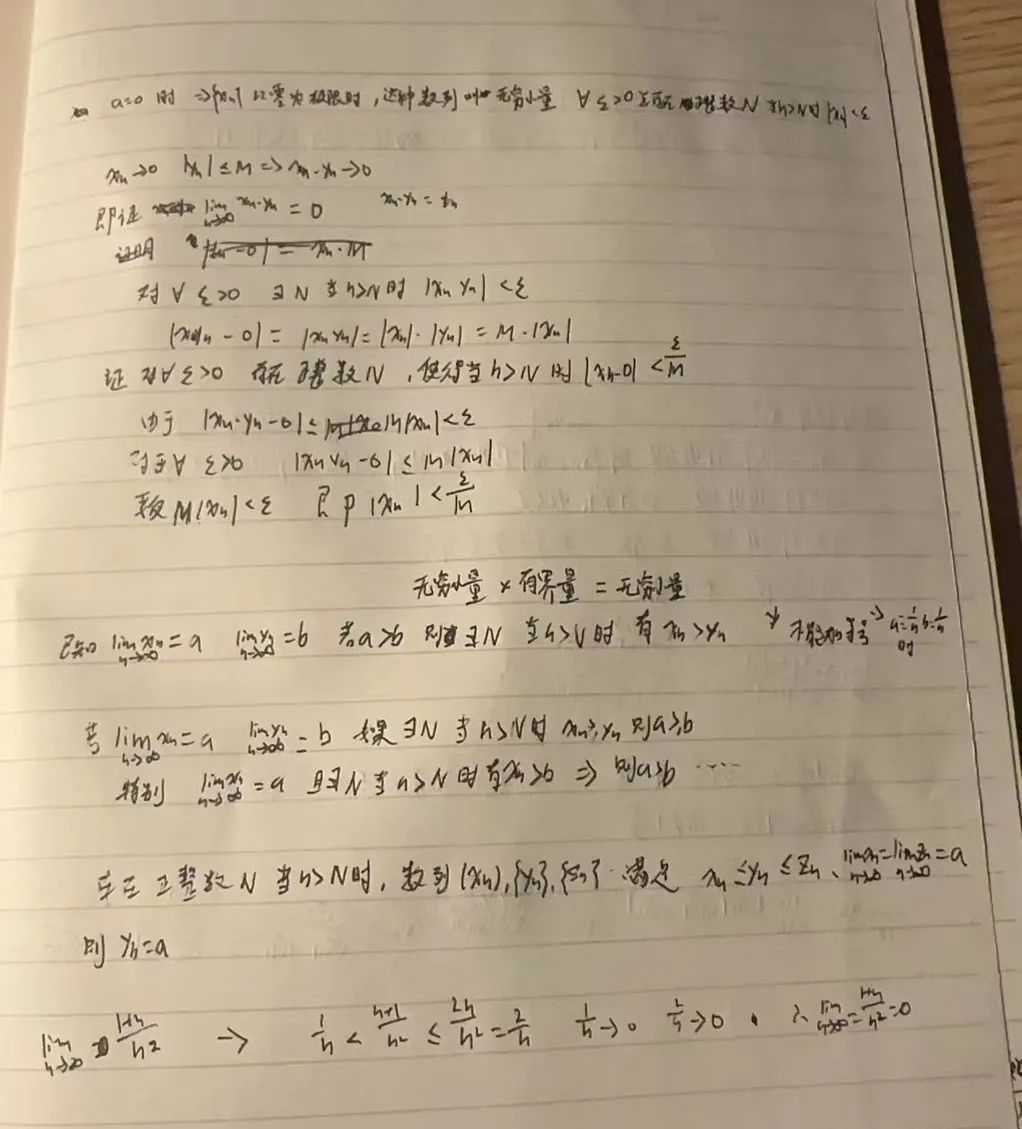 a=0 时 ⇒{xn} 以零为极限时,这种数列叫 无穷小量 ∀ε>0 存在 整数N 当n>N时 |xn|<ε
xn→0 |yn|≤M ⇒ xn·yn→0
即证 lim n→∞ xn·yn = 0 xn·yn = zn
证明 |zn-0| = xn·M
对∀ε>0 ∃N 当n>N时 |xn yn|<ε
|xnyn-0| = |xn yn| = |xn|·|yn| = M·|xn|
证 对∀ε>0 存在 整数N,使得当n>N时 |xn-0|<ε/M
由于 |xn·yn-0|≤ M|xn|<ε
对于∀ε>0 |xn yn-0|≤M|xn|
M|xn|<ε 即 |xn|<ε/M
无穷小量×有界量=无穷小量
已知 lim n→∞ xn=a lim n→∞ yn=b 若a>b 则∃N 当n>N时 有xn>yn 不能加等号→ 时
若 lim n→∞ xn=a lim n→∞ yn=b 如果∃N 当n>N时 xn≥yn 则a≥b
特别 lim n→∞ xn=a 且∃N当n>N时有xn>b ⇒ 则a≥b ……
存在正整数N 当n>N时,数列{xn},{yn},{zn} 满足 xn≤yn≤zn、lim n→∞ xn=lim n→∞ zn=a
则 yn=a
lim n→∞ 1+n/n² → 1/n < n+1/n² ≤ 2n/n² = 2/n 1/n→0 2/n→0 . ∴ lim n→∞ = 1+n/n² =0